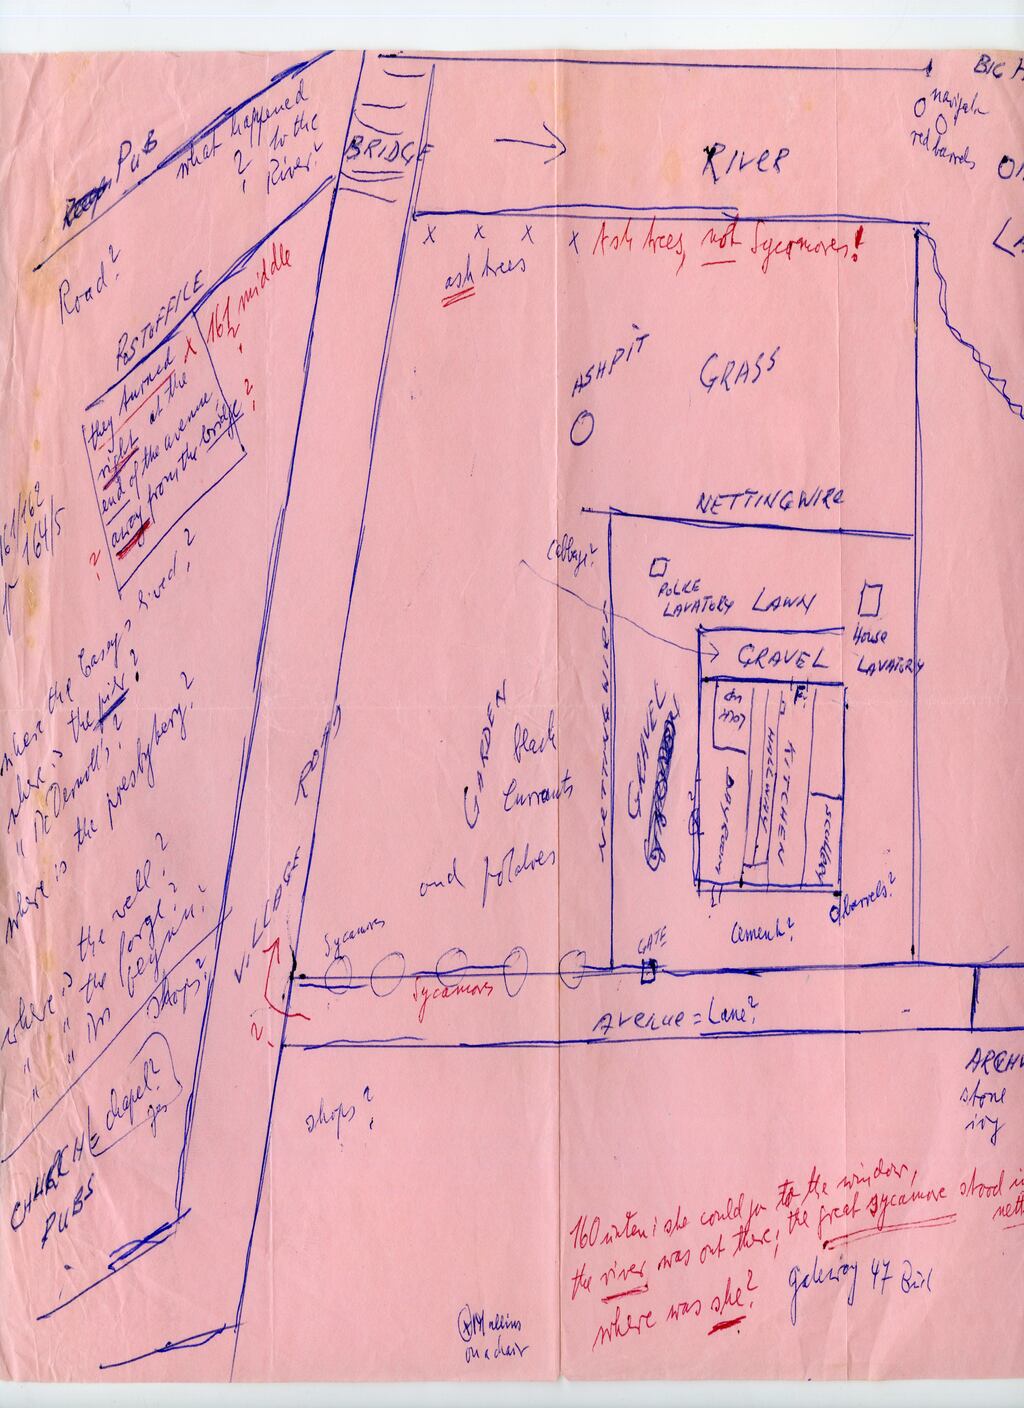 PUB
what happened
? to the
River?
BRIDGE
RIVER
BIG H
navigation
red barrels
Road?
ash trees
Ash trees, not Sycamores!
POSTOFFICE
161 middle
?
?
they turned
right at the
end of the avenue
away from the bridge
?
161/162
164/5
ASHPIT
GRASS
NETTINGWIRE
Cabbage?
POLICE
LAVATORY
LAWN
House
LAVATORY
GRAVEL
NETTINGWIRE
GRAVEL
LOCK UP
DAYROOM
HALLWAY
KITCHEN
scullery
barrels?
Cement?
GATE
GARDEN
black
currants
and potatoes
where the Caseys lived?
where is the pier?
" McDermott's?
where is the presbytery?
where is the well?
" " the forge?
shops?
VILLAGE ROAD
Sycamores
Sycamores
?
AVENUE = Lane?
ARCHW
stone
ivy
CHURCH = chapel?
yes
PUBS
shops?
160 unten: she could go to the window,
the river was out there; the great sycamore stood in
nett
where was she?
Galeway 47 Bird
Mullins
on a chair